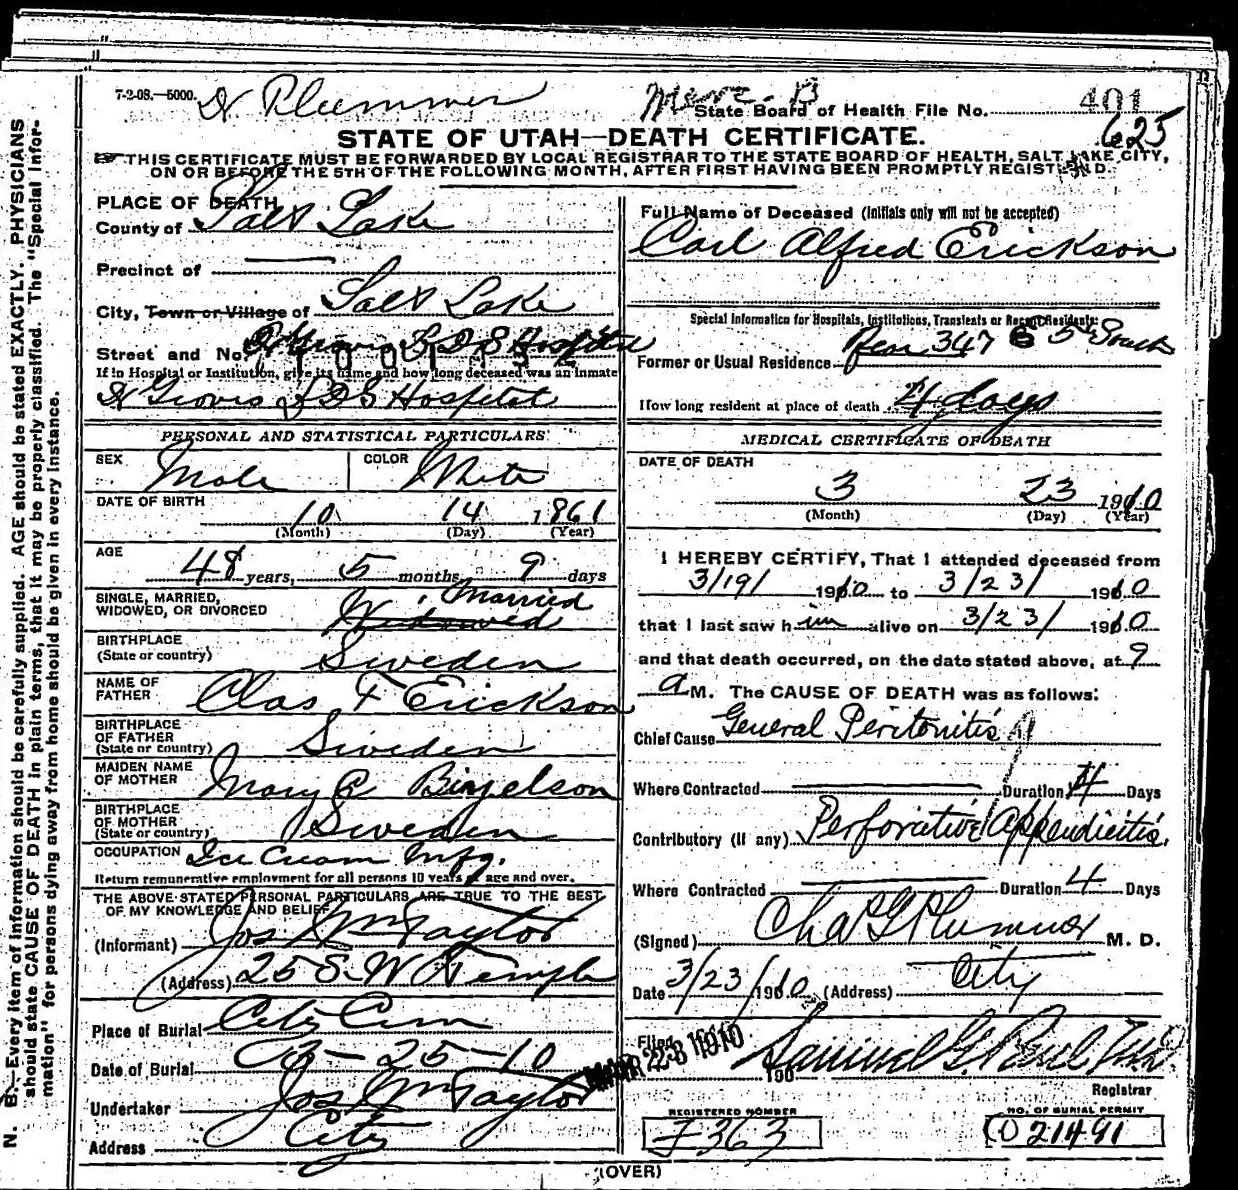 7-2-08.—5000. Dr Plummer
State Board of Health File No. 401
625
STATE OF UTAH—DEATH CERTIFICATE.
THIS CERTIFICATE MUST BE FORWARDED BY LOCAL REGISTRAR TO THE STATE BOARD OF HEALTH, SALT LAKE CITY,
ON OR BEFORE THE 5TH OF THE FOLLOWING MONTH, AFTER FIRST HAVING BEEN PROMPTLY REGISTERED.
N. B.—Every item of information should be carefully supplied. AGE should be stated EXACTLY. PHYSICIANS
should state CAUSE OF DEATH in plain terms, that it may be properly classified. The "Special Infor-
mation" for persons dying away from home should be given in every instance.
PLACE OF DEATH
County of Salt Lake
Precinct of
City, Town or Village of Salt Lake
Street and No. Groves L D S Hospital
If in Hospital or Institution, give its name and how long deceased was an inmate
Dr Groves L D S Hospital
PERSONAL AND STATISTICAL PARTICULARS
SEX Male COLOR White
DATE OF BIRTH 10 14 1861
(Month) (Day) (Year)
AGE 48 years, 5 months 9 days
SINGLE, MARRIED,
WIDOWED, OR DIVORCED Widowed Married
BIRTHPLACE
(State or country) Sweden
NAME OF
FATHER Clas F Erickson
BIRTHPLACE
OF FATHER
(State or country) Sweden
MAIDEN NAME
OF MOTHER Mary C
BIRTHPLACE
OF MOTHER
(State or country) Sweden
OCCUPATION Ice Cream Mfg.
Return remunerative employment for all persons 10 years of age and over.
THE ABOVE STATED PERSONAL PARTICULARS ARE TRUE TO THE BEST
OF MY KNOWLEDGE AND BELIEF
(Informant) Jos Wm Taylor
(Address) 25 S. W Temple
Place of Burial City Cem
Date of Burial 3-25-10
Undertaker Jos Wm Taylor
Address City
Full Name of Deceased (Initials only will not be accepted)
Carl Alfred Erickson
Special Information for Hospitals, Institutions, Transients or Recent Residents:
Former or Usual Residence Rear 347 E 5th South
How long resident at place of death 4 days
MEDICAL CERTIFICATE OF DEATH
DATE OF DEATH
3 23 1910
(Month) (Day) (Year)
I HEREBY CERTIFY, That I attended deceased from
3/19/ 1910 to 3/23/ 1910
that I last saw him alive on 3/23/ 1910
and that death occurred, on the date stated above, at 9
a M. The CAUSE OF DEATH was as follows:
Chief Cause General Peritonitis
Where Contracted Duration 4 Days
Contributory (if any) Perforative Appendicitis
Where Contracted Duration 4 Days
(Signed) Chas G Plummer M. D.
Date 3/23/1910 (Address) City
Filed 190 Samuel G. Paul
Registrar
REGISTERED NUMBER
F363
NO. OF BURIAL PERMIT
21491
(OVER)